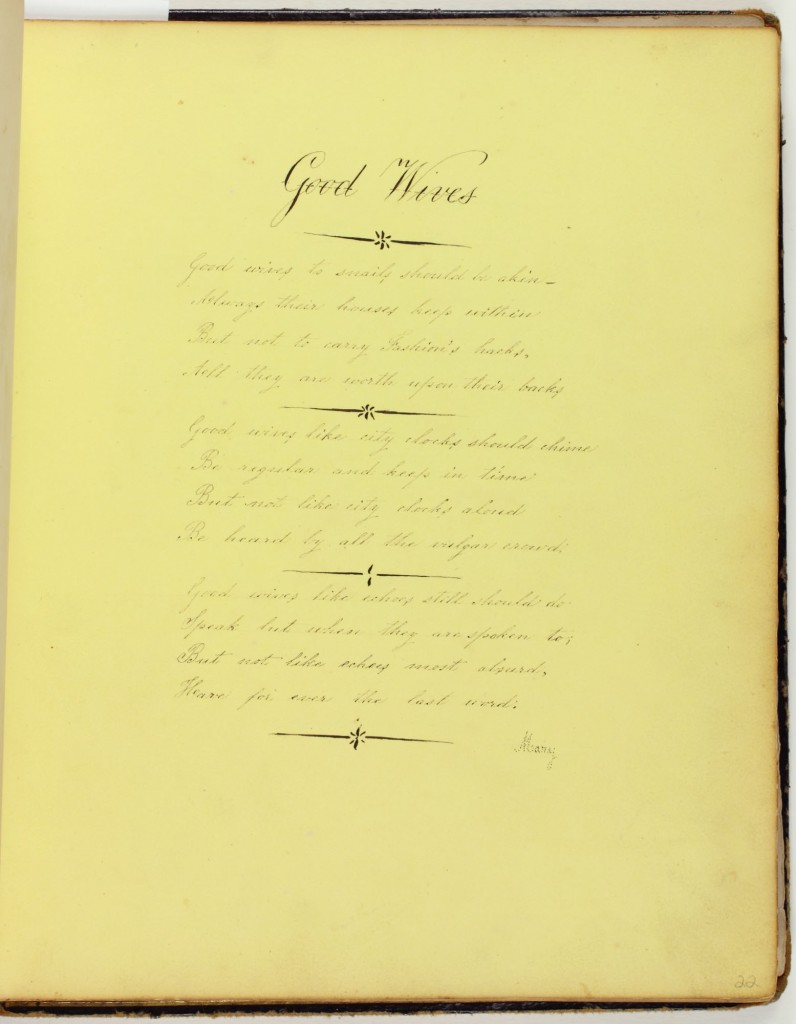 Good Wives
Good wives to snails should be akin –
Always their houses keep within
But not to carry Fashion's hacks,
All they are worth upon their backs
Good wives like city clocks should chime
Be regular and keep in time
But not like city clocks aloud
Be heard by all the vulgar crowd:
Good wives like echoes still should do
Speak but when they are spoken to;
But not like echoes most absurd,
Have for ever the last word.
Mary
22